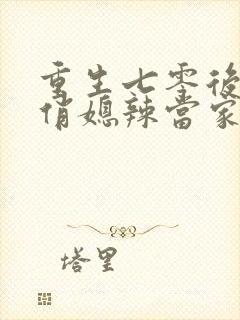 重生七零後
俏媳辣當家
塔里